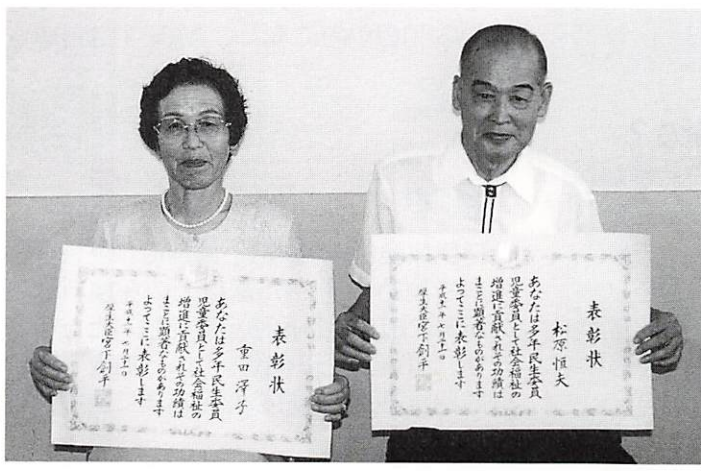 表彰状
重田澤子
あなたは多年民生委員
児童委員として社会福祉の
増進に貢献されその功績は
まことに顕著なものがあります
よってここに表彰します
平成十一年 七月三十一日
厚生大臣 宮下創平
表彰状
松原恒夫
あなたは多年民生委員
児童委員として社会福祉の
増進に貢献されその功績は
まことに顕著なものがあります
よってここに表彰します
平成十一年 七月三十一日
厚生大臣 宮下創平